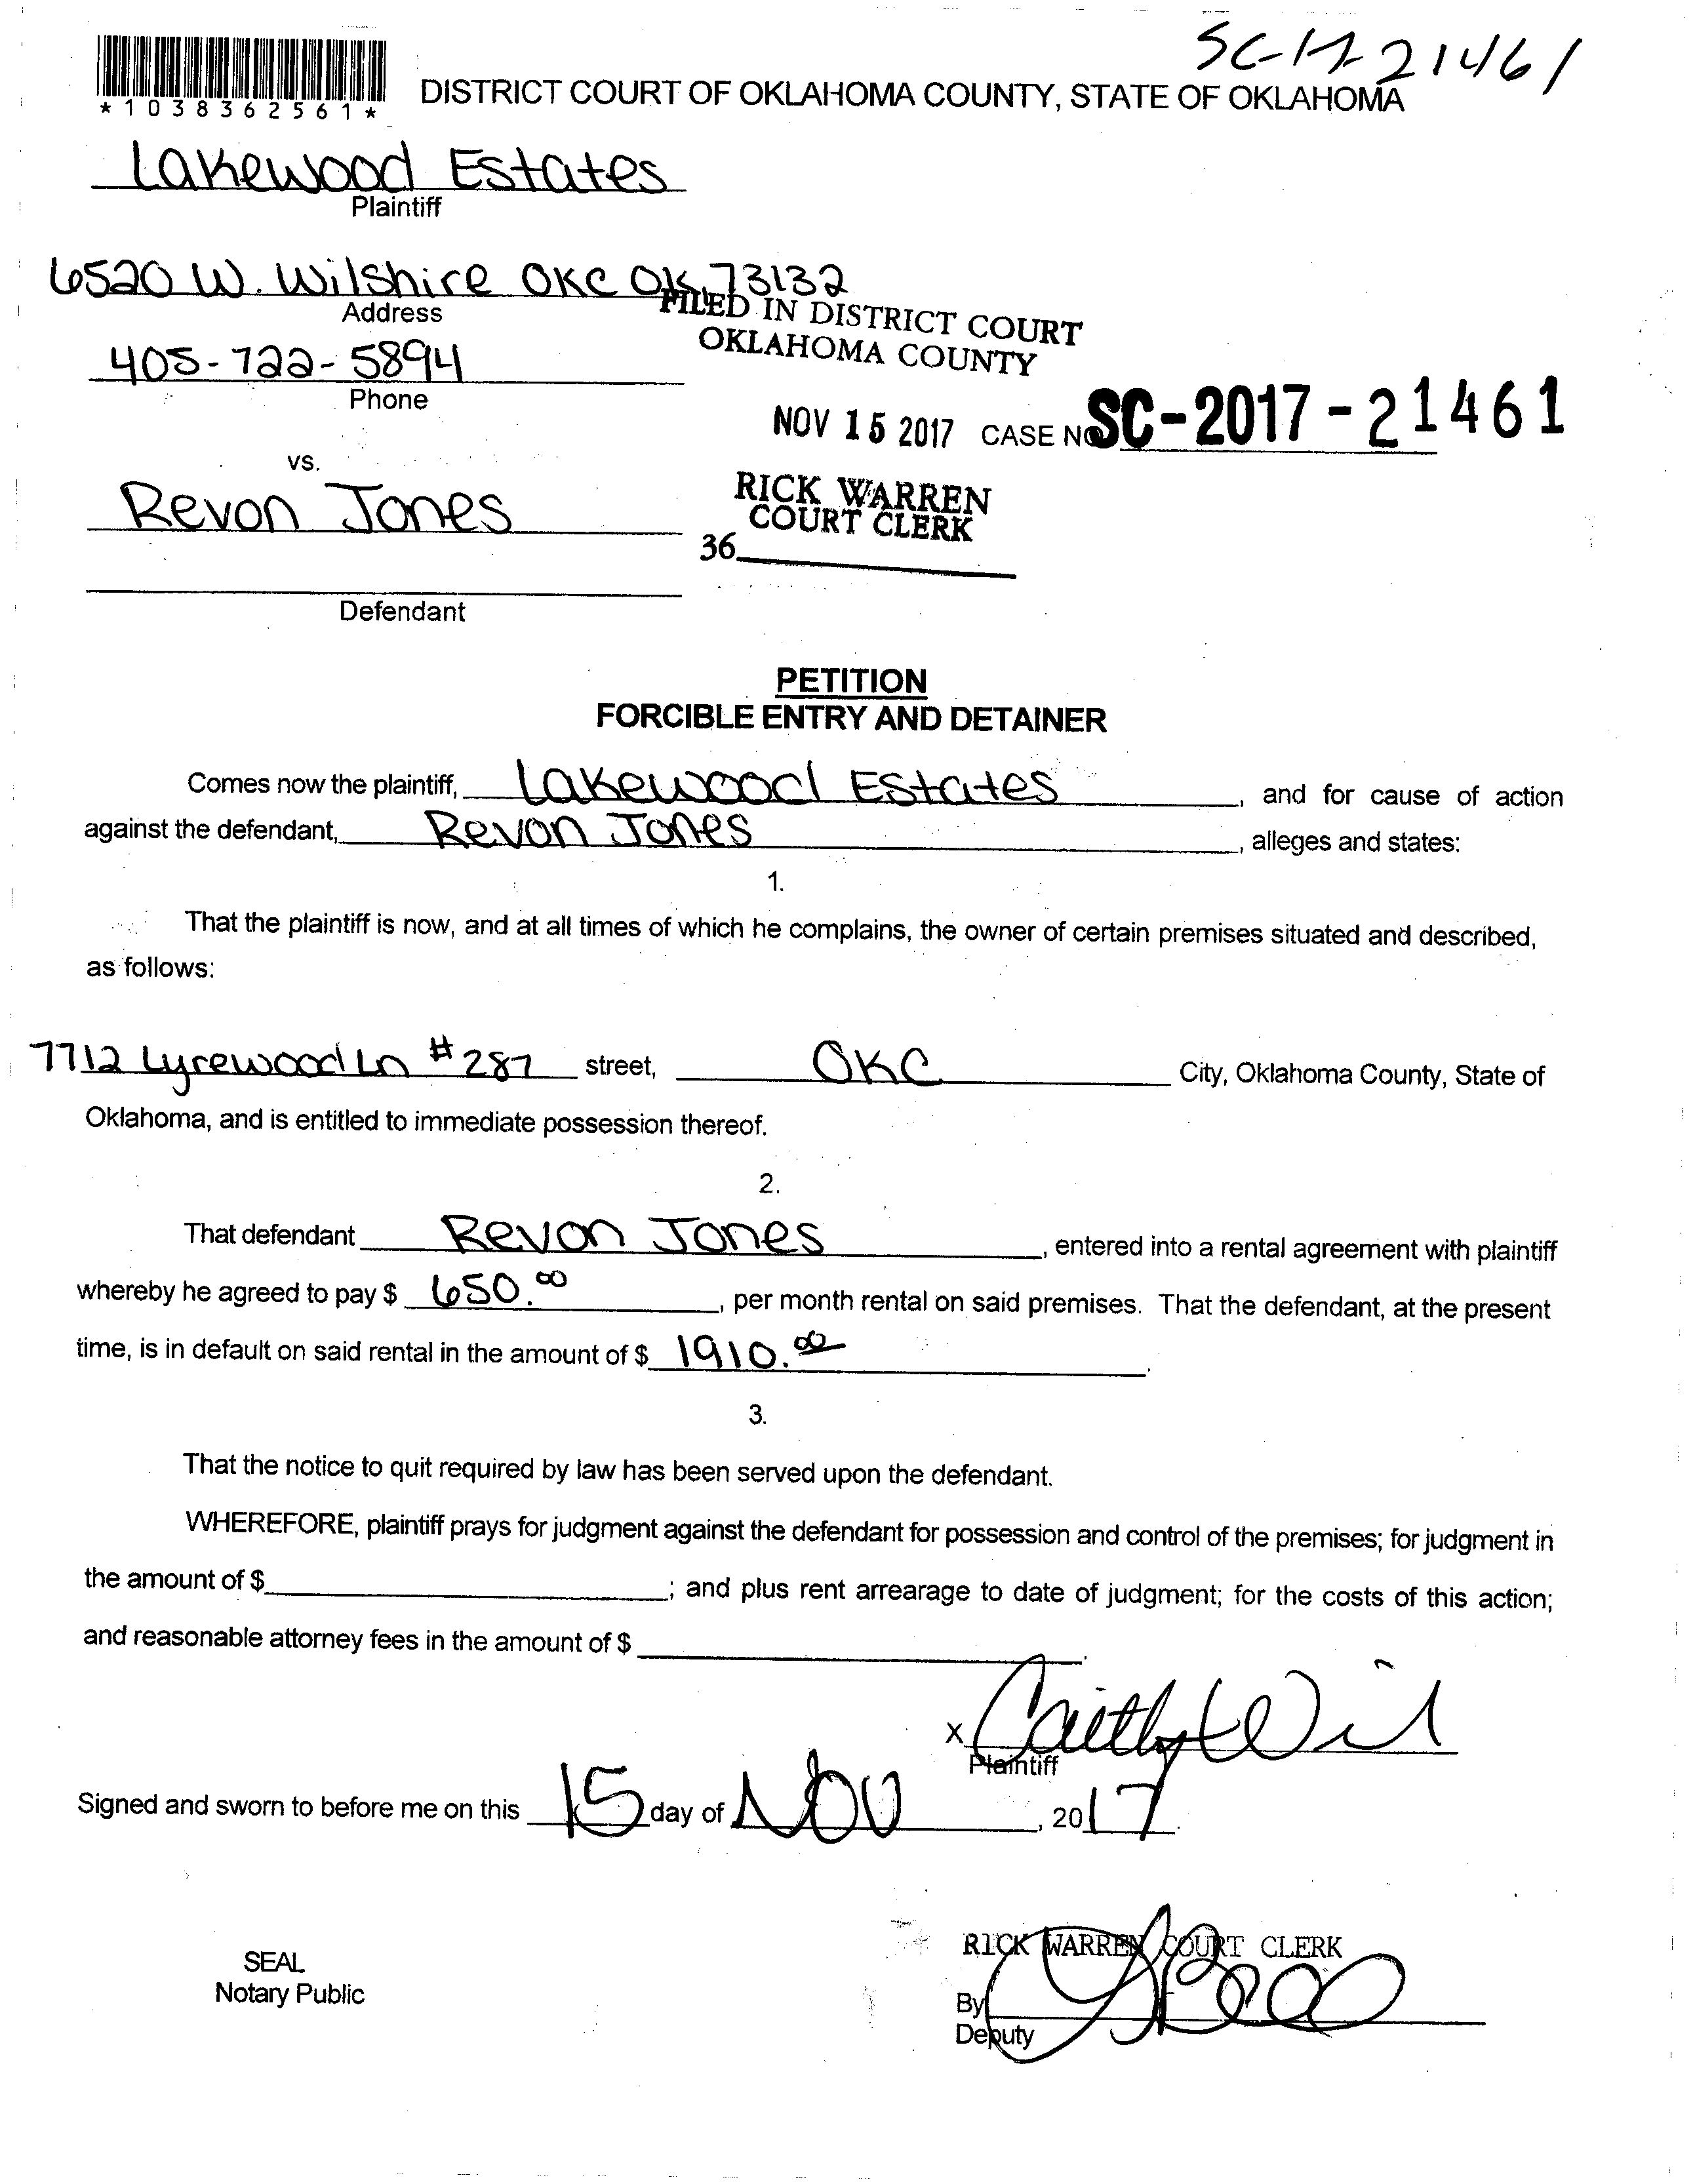 SC-17-21461
*1038362561*
DISTRICT COURT OF OKLAHOMA COUNTY, STATE OF OKLAHOMA
Lakewood Estates
Plaintiff
6520 W. Wilshire OKC OK 73132
Address
FILED IN DISTRICT COURT
OKLAHOMA COUNTY
405-722-5894
Phone
NOV 15 2017 CASE NO SC-2017-21461
vs.
RICK WARREN
COURT CLERK
Revon Jones
36
Defendant
PETITION
FORCIBLE ENTRY AND DETAINER
Comes now the plaintiff, Lakewood Estates, and for cause of action
against the defendant, Revon Jones, alleges and states:
1.
That the plaintiff is now, and at all times of which he complains, the owner of certain premises situated and described,
as follows:
7712 Lyrewood Ln #287 street, OKC City, Oklahoma County, State of
Oklahoma, and is entitled to immediate possession thereof.
2.
That defendant Revon Jones, entered into a rental agreement with plaintiff
whereby he agreed to pay $ 650.00, per month rental on said premises. That the defendant, at the present
time, is in default on said rental in the amount of $ 1910.00.
3.
That the notice to quit required by law has been served upon the defendant.
WHEREFORE, plaintiff prays for judgment against the defendant for possession and control of the premises; for judgment in
the amount of $ ; and plus rent arrearage to date of judgment; for the costs of this action;
and reasonable attorney fees in the amount of $ .
X
Plaintiff
Signed and sworn to before me on this 15 day of Nov, 2017.
RICK WARREN COURT CLERK
SEAL
Notary Public
By
Deputy